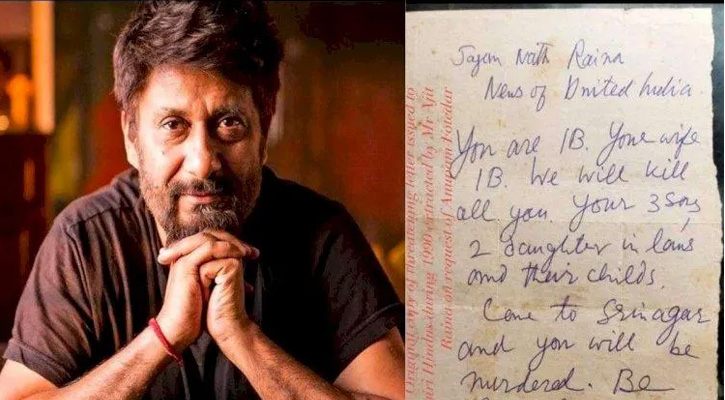 Sajam Nath Raina
News of United India
You are IB. Your wife
IB. We will kill
all you. Your 3 sons,
2 daughter in laws
and their childs.
Come to Srinagar
and you will be
murdered. Be
Original copy of threatening letter issued to
Hindus during 1990 extracted by Mr Ajit
Raina on request of Anupam